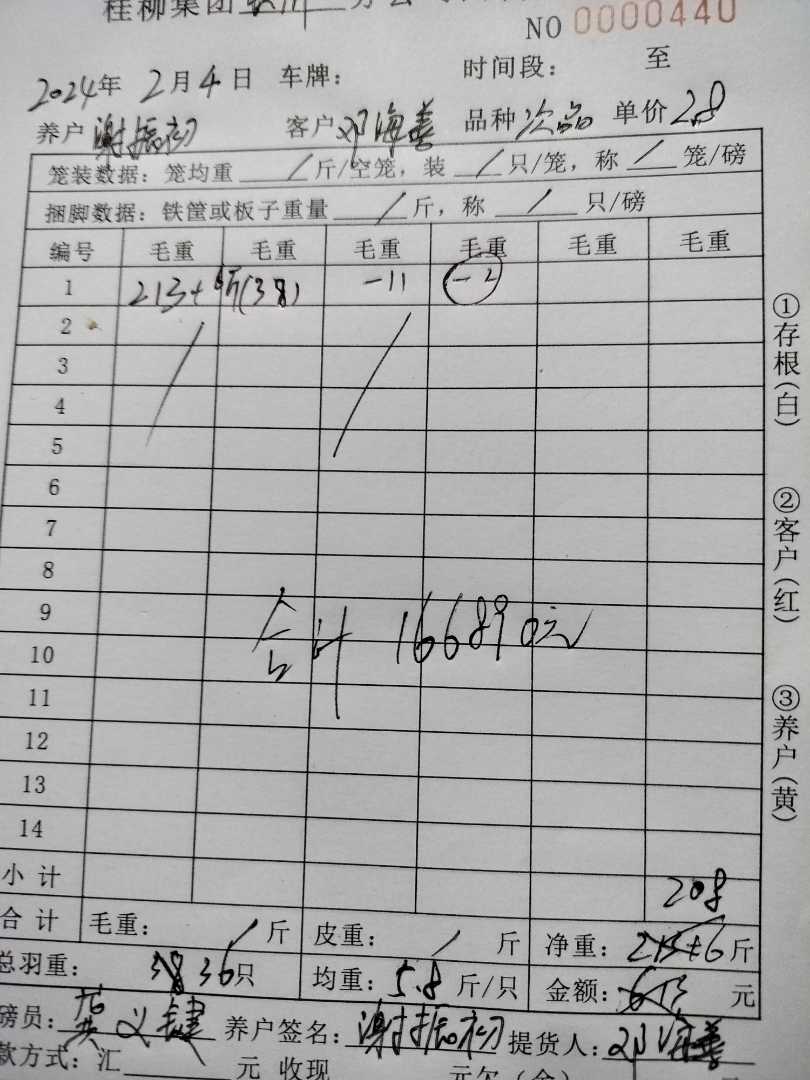 桂柳集团
NO 0000440
2024年 2月4日 车牌: 时间段: 至
养户 谢振初 客户 邓海善 品种 次品 单价 2.8
笼装数据: 笼均重 / 斤/空笼, 装 / 只/笼, 称 / 笼/磅
捆脚数据: 铁筐或板子重量 / 斤, 称 / 只/磅
编号 毛重 毛重 毛重 毛重 毛重 毛重
1 213+ 斤(38) -11 -2
2
3
4
5
6
7
8
9
合计 166890元
10
11
12
13
14
小计 208
合计 毛重: / 斤 皮重: / 斤 净重: 斤
总羽重: 36只 均重: 5.8 斤/只 金额: 元
磅员: 黄义键 养户签名: 谢振初 提货人: 邓海善
款方式: 汇 元 收现 元欠(余)
①存根(白)
②客户(红)
③养户(黄)